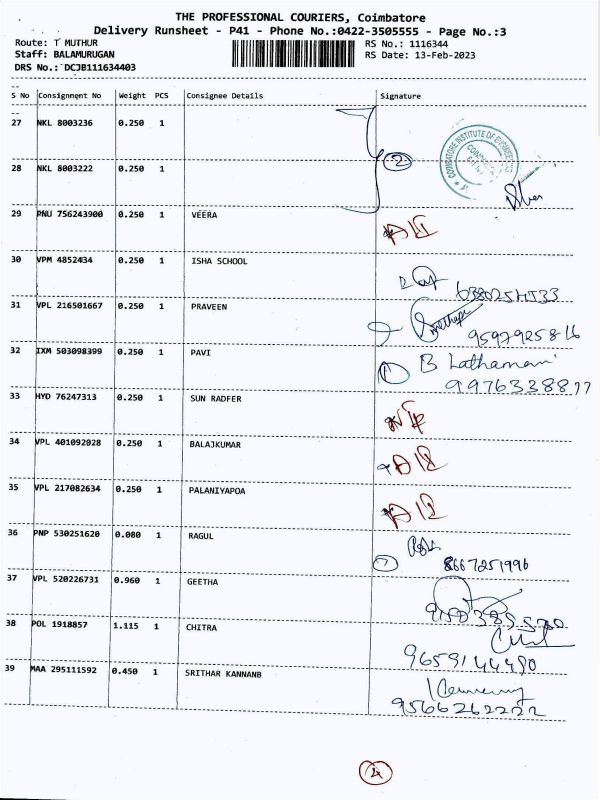 THE PROFESSIONAL COURIERS, Coimbatore
Delivery Runsheet - P41 - Phone No.:0422-3505555 - Page No.:3
Route: T MUTHUR
RS No.: 1116344
Staff: BALAMURUGAN
RS Date: 13-Feb-2023
DRS No.: DCJB111634403
S No Consignment No Weight PCS Consignee Details Signature
27 NKL 8003236 0.250 1
COIMBATORE INSTITUTE OF ENGINEERING
28 NKL 8003222 0.250 1 2
29 PNU 756243900 0.250 1 VEERA
30 VPM 4852434 0.250 1 ISHA SCHOOL
31 VPL 216501667 0.250 1 PRAVEEN
9597925816
32 IXM 503098399 0.250 1 PAVI 1 B Lathamani
9976338877
33 HYD 76247313 0.250 1 SUN RADFER
34 VPL 401092028 0.250 1 BALAJKUMAR
35 VPL 217082634 0.250 1 PALANIYAPOA
36 PNP 530251620 0.080 1 RAGUL
8667251996
37 VPL 520226731 0.960 1 GEETHA
38 POL 1918857 1.115 1 CHITRA
9659144490
39 MAA 295111592 0.450 1 SRITHAR KANNANB
9566262222
4